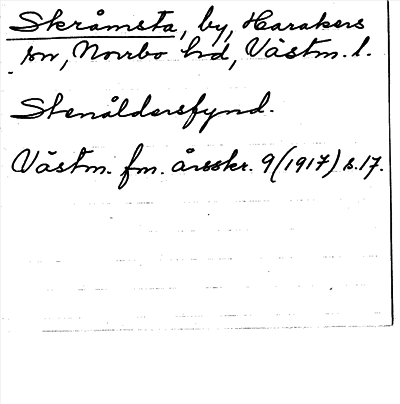 Skråmsta, by, Harakers
sn, Norrbo hd, Västm. l.
Stenåldersfynd.
Västm. fm. årsskr. 9 (1917) s. 17.